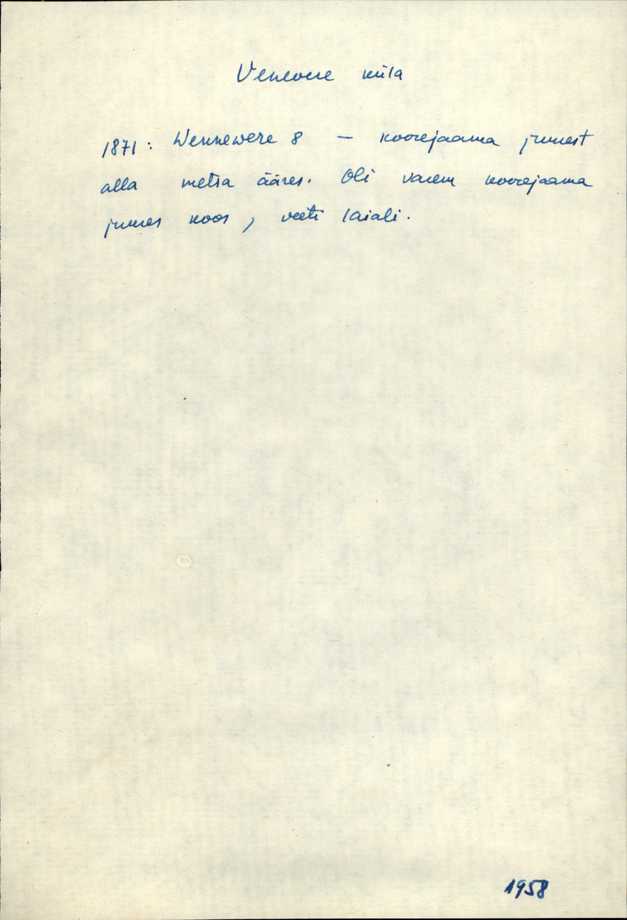 Venevere küla
1871: Wennewere 8 – koorejaama juurest
alla metsa ääres. Oli varem koorejaama
juures koos, veeti laiali.
1958